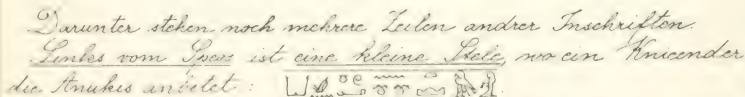 Darunter stehen noch mehrere Zeilen andrer Inschriften.
Links vom Speos ist eine kleine Stele, wo ein Knieender
die Anukis anbetet: